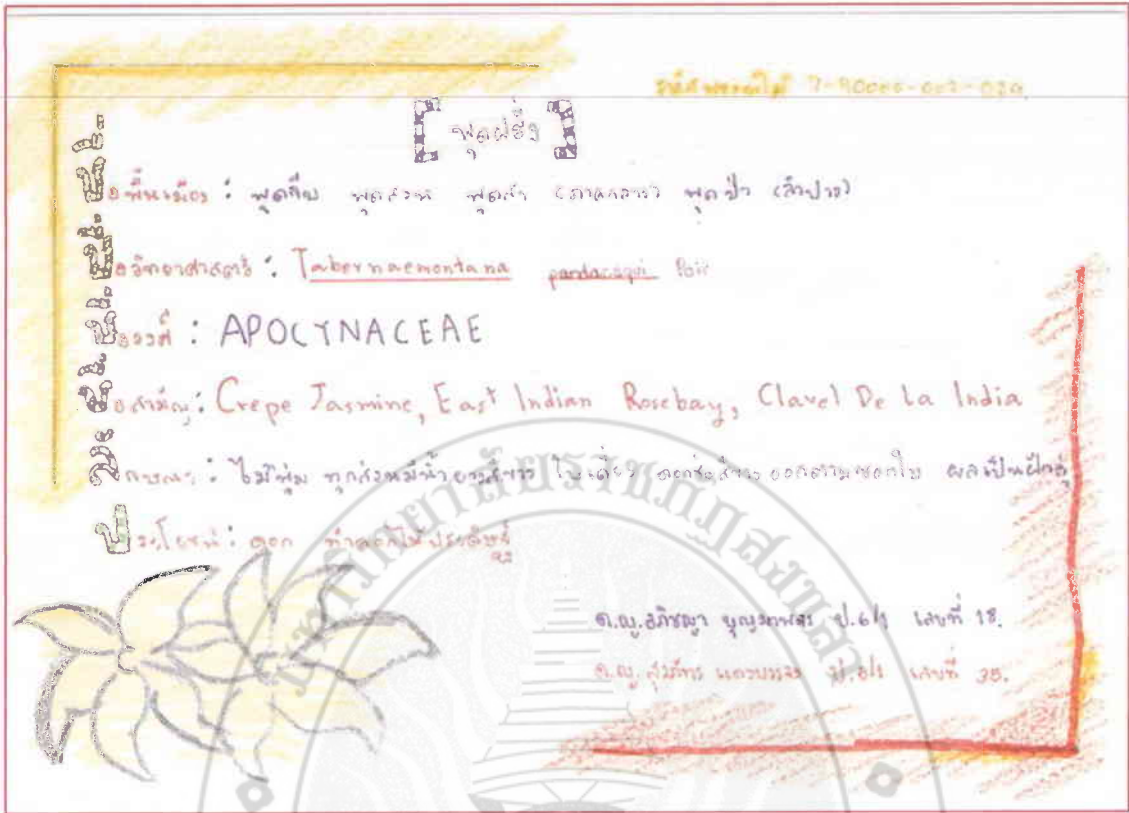 รหัสพรรณไม้ 7-90000-007-029
พุดฝรั่ง
ชื่อพื้นเมือง : พุดจีบ พุดสวน พุดสา (ภาคกลาง) พุดป่า (ลำปาง)
ชื่อวิทยาศาสตร์ : Tabernaemontana pandacaqui Poir
ชื่อวงศ์ : APOCYNACEAE
ชื่อสามัญ : Crepe Jasmine, East Indian Rosebay, Clavel De La India
ลักษณะ : ไม้พุ่ม ทุกส่วนมีน้ำยางสีขาว ใบเดี่ยว ดอกช่อสีขาว ออกตามซอกใบ ผลเป็นฝักคู่
ประโยชน์ : ดอก ทำดอกไม้ประดิษฐ์
ด.ญ. ป.6/1 เลขที่ 18.
ด.ญ. ป.6/1 เลขที่ 35.
มหาวิทยาลัยราชภัฏสงขลา